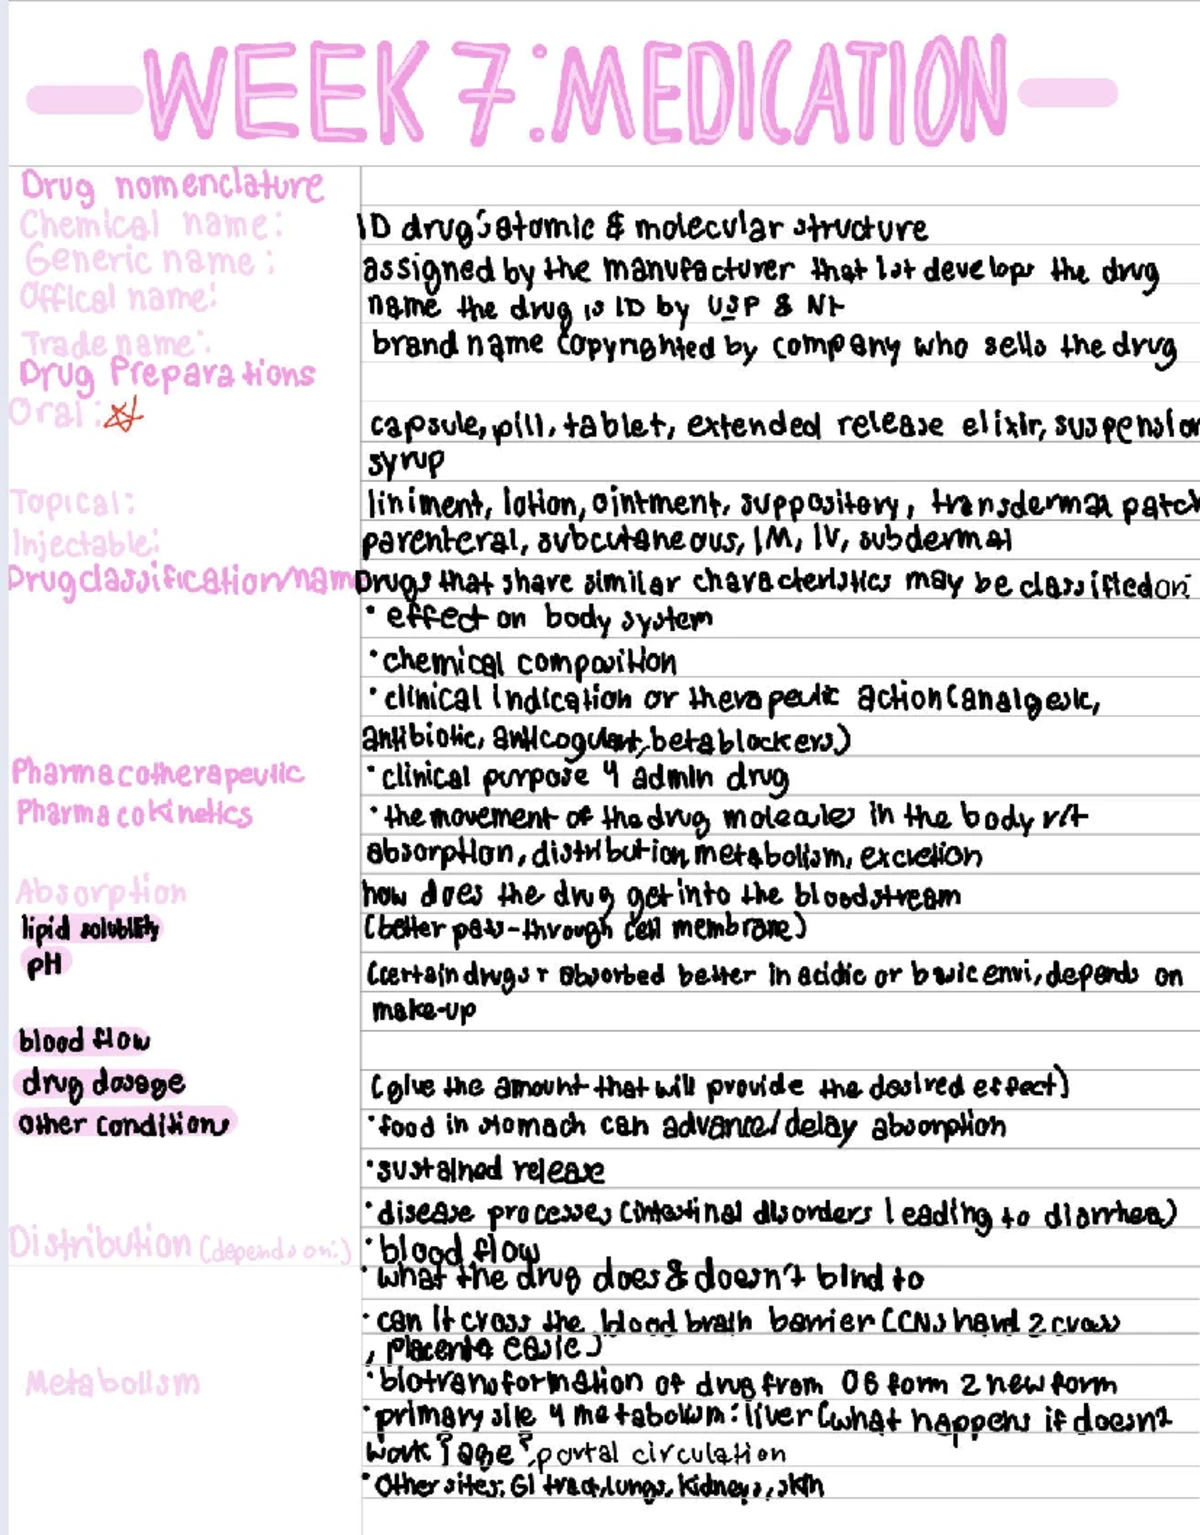 WEEK 7: MEDICATION
Drug nomenclature
Chemical name: ID drug's atomic & molecular structure
Generic name: assigned by the manufacturer that 1st develops the drug
Offical name: name the drug is ID by USP & NF
Trade name: brand name copyrighted by company who sells the drug
Drug Preparations
Oral:
capsule, pill, tablet, extended release elixir, suspension
syrup
Topical: liniment, lotion, ointment, suppository, transdermal patch
Injectable: parenteral, subcutaneous, IM, IV, subdermal
Drug classification/name Drugs that share similar characteristics may be classified on:
• effect on body system
• chemical composition
• clinical indication or therapeutic action (analgesic,
antibiotic, anticogulant, beta blockers)
Pharmacotherapeutic • clinical purpose 4 admin drug
Pharmacokinetics • the movement of the drug molecules in the body r/t
absorption, distribution, metabolism, excretion
Absorption how does the drug get into the bloodstream
lipid solubility (better pass-through cell membrane)
pH (certain drugs r absorbed better in acidic or basic envi, depends on
make-up
blood flow
drug dosage (give the amount that will provide the desired effect)
other conditions • food in stomach can advance/delay absorption
• sustained release
• disease processes (intestinal disorders leading to diarrhea)
Distribution (depends on:) • blood flow
• what the drug does & doesn't bind to
• can it cross the blood brain barrier (CNS hard 2 cross
, placenta easie)
Metabolism • biotransformation of drug from OG form 2 new form
• primary site 4 metabolism: liver (what happens if doesn't
work? age?, portal circulation
• Other sites: GI tract, lungs, kidneys, skin